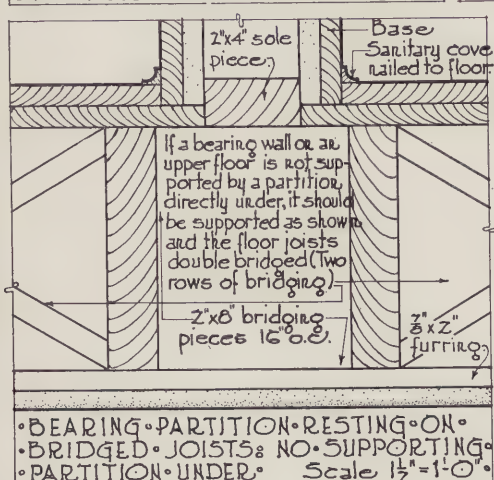 2"x4" sole
piece.
Base
Sanitary cove
nailed to floor.
If a bearing wall on an
upper floor is not sup-
ported by a partition
directly under, it should
be supported as shown
and the floor joists
double bridged (Two
rows of bridging)
2"x8" bridging
pieces 16" o.c.
7/8" x 2"
furring.
•BEARING•PARTITION•RESTING•ON•
•BRIDGED•JOISTS: NO•SUPPORTING•
•PARTITION•UNDER• Scale 1½"=1'-0"•